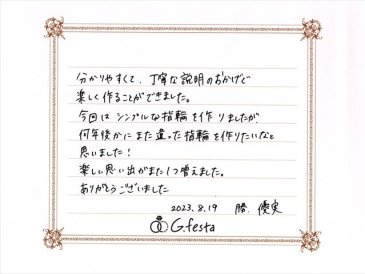 分かりやすくて、丁寧な説明のおかげで
楽しく作ることができました。
今回は シンプルな指輪を作りましたが
何年後かにまた違った指輪を作りたいなと
思いました！
楽しい思い出がまた1つ増えました。
ありがとうございました
2023.8.19 勝 優実
G.festa